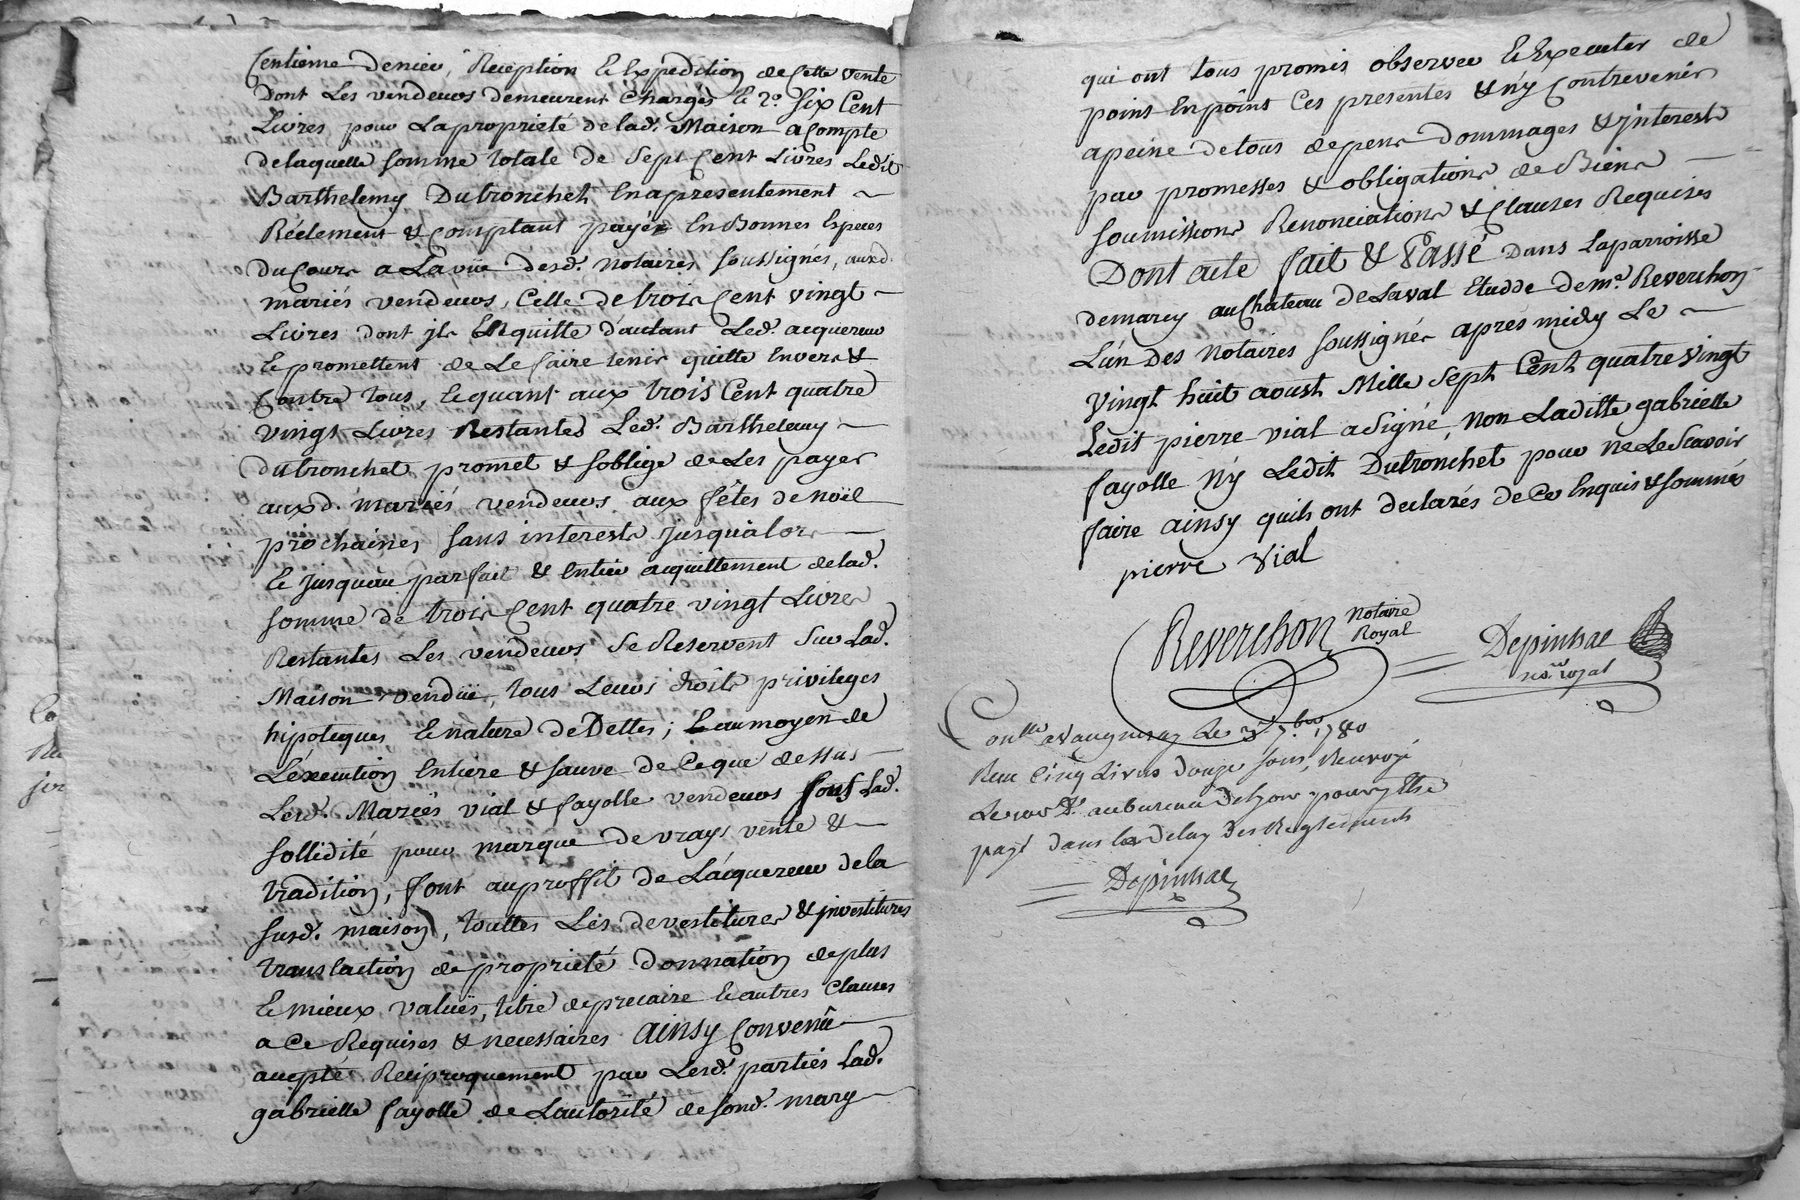 Centieme denier, Reception & Expedition de Cette vente
Dont Les vendeurs demeurent Chargés & 2.º Six Cent
Livres pour La proprieté de lad. Maison a Compte
de laquelle somme totale de Sept Cent Livres Ledit
Barthelemy Dutronchet En a presentement ~
Réelement & Comptant payér En Bonnes Especes
Du Cours a La vüe desd. Notaires soussignés, auxd.
mariés vendeurs, Celle de trois Cent vingt ~
Livres dont ils En quitte d'autant Led. acquereur
& promettent de Le faire tenir quitte Envers &
Contre tous, & quant aux trois Cent quatre
vingt Livres Restantes Led. Barthelemy ~
dutronchet promet & soblige de Les payer
auxd. mariés vendeurs aux fêtes de noël
prochaines sans interests jusqu'alors —
& jusqu'au parfait & Entier acquittement de lad.
somme de trois Cent quatre vingt Livres
Restantes Les vendeurs Se Reservent Sur Lad.
Maison vendüe, tous Leurs droits privileges
hipoteques & nature de Dettes; & au moyen de
L'éxecution Entiere & sauve de Ce que dessus —
Lesd. Mariés vial & fayolle vendeurs sous Lad.
sollidité pour marque de vraye vente & —
tradition, font au proffit de L'acquereur de la
susd. maison, touttes Les devestitures & jnvestitures
translation de proprieté donnation de plus
& mieux valües, titre de precaire & autres Clauses
a Ce Requises & necessaires Ainsy Convenû —
accepté Reciproquement par Lesd. parties Lad.
gabrielle fayolle de L'autorité de sond. mary —
qui ont tous promis observer & Executer de
point En point Ces presentes & n'y Contrevenir
a peine de tous depens dommages & jnterests
par promesses & obligations de Biens —
soumissions Renonciations & Clauses Requises
Dont acte fait & Passé Dans La parroisse
de marcy au Chateau de Laval Etudde de m.e Reverchon
L'un des notaires soussignés apres midy Le ~
vingt huit aoust Mille Sept Cent quatre vingt
Ledit pierre vial a Signé, non Laditte gabrielle
fayolle n'y Ledit Dutronchet pour ne Le Scavoir
faire ainsy quils ont declarés de Ce Enquis & sommés
pierre vial
Reverchon Notaire
Royal
Depinhac
no.re royal
Con.llé a Vaugneray Le 3 7.bre 1780
Reçu Cinq Livres douze sous, Renvoyé
au bureau de Lyon pour y être
payé dans Le delay des Reglements
Depinhac